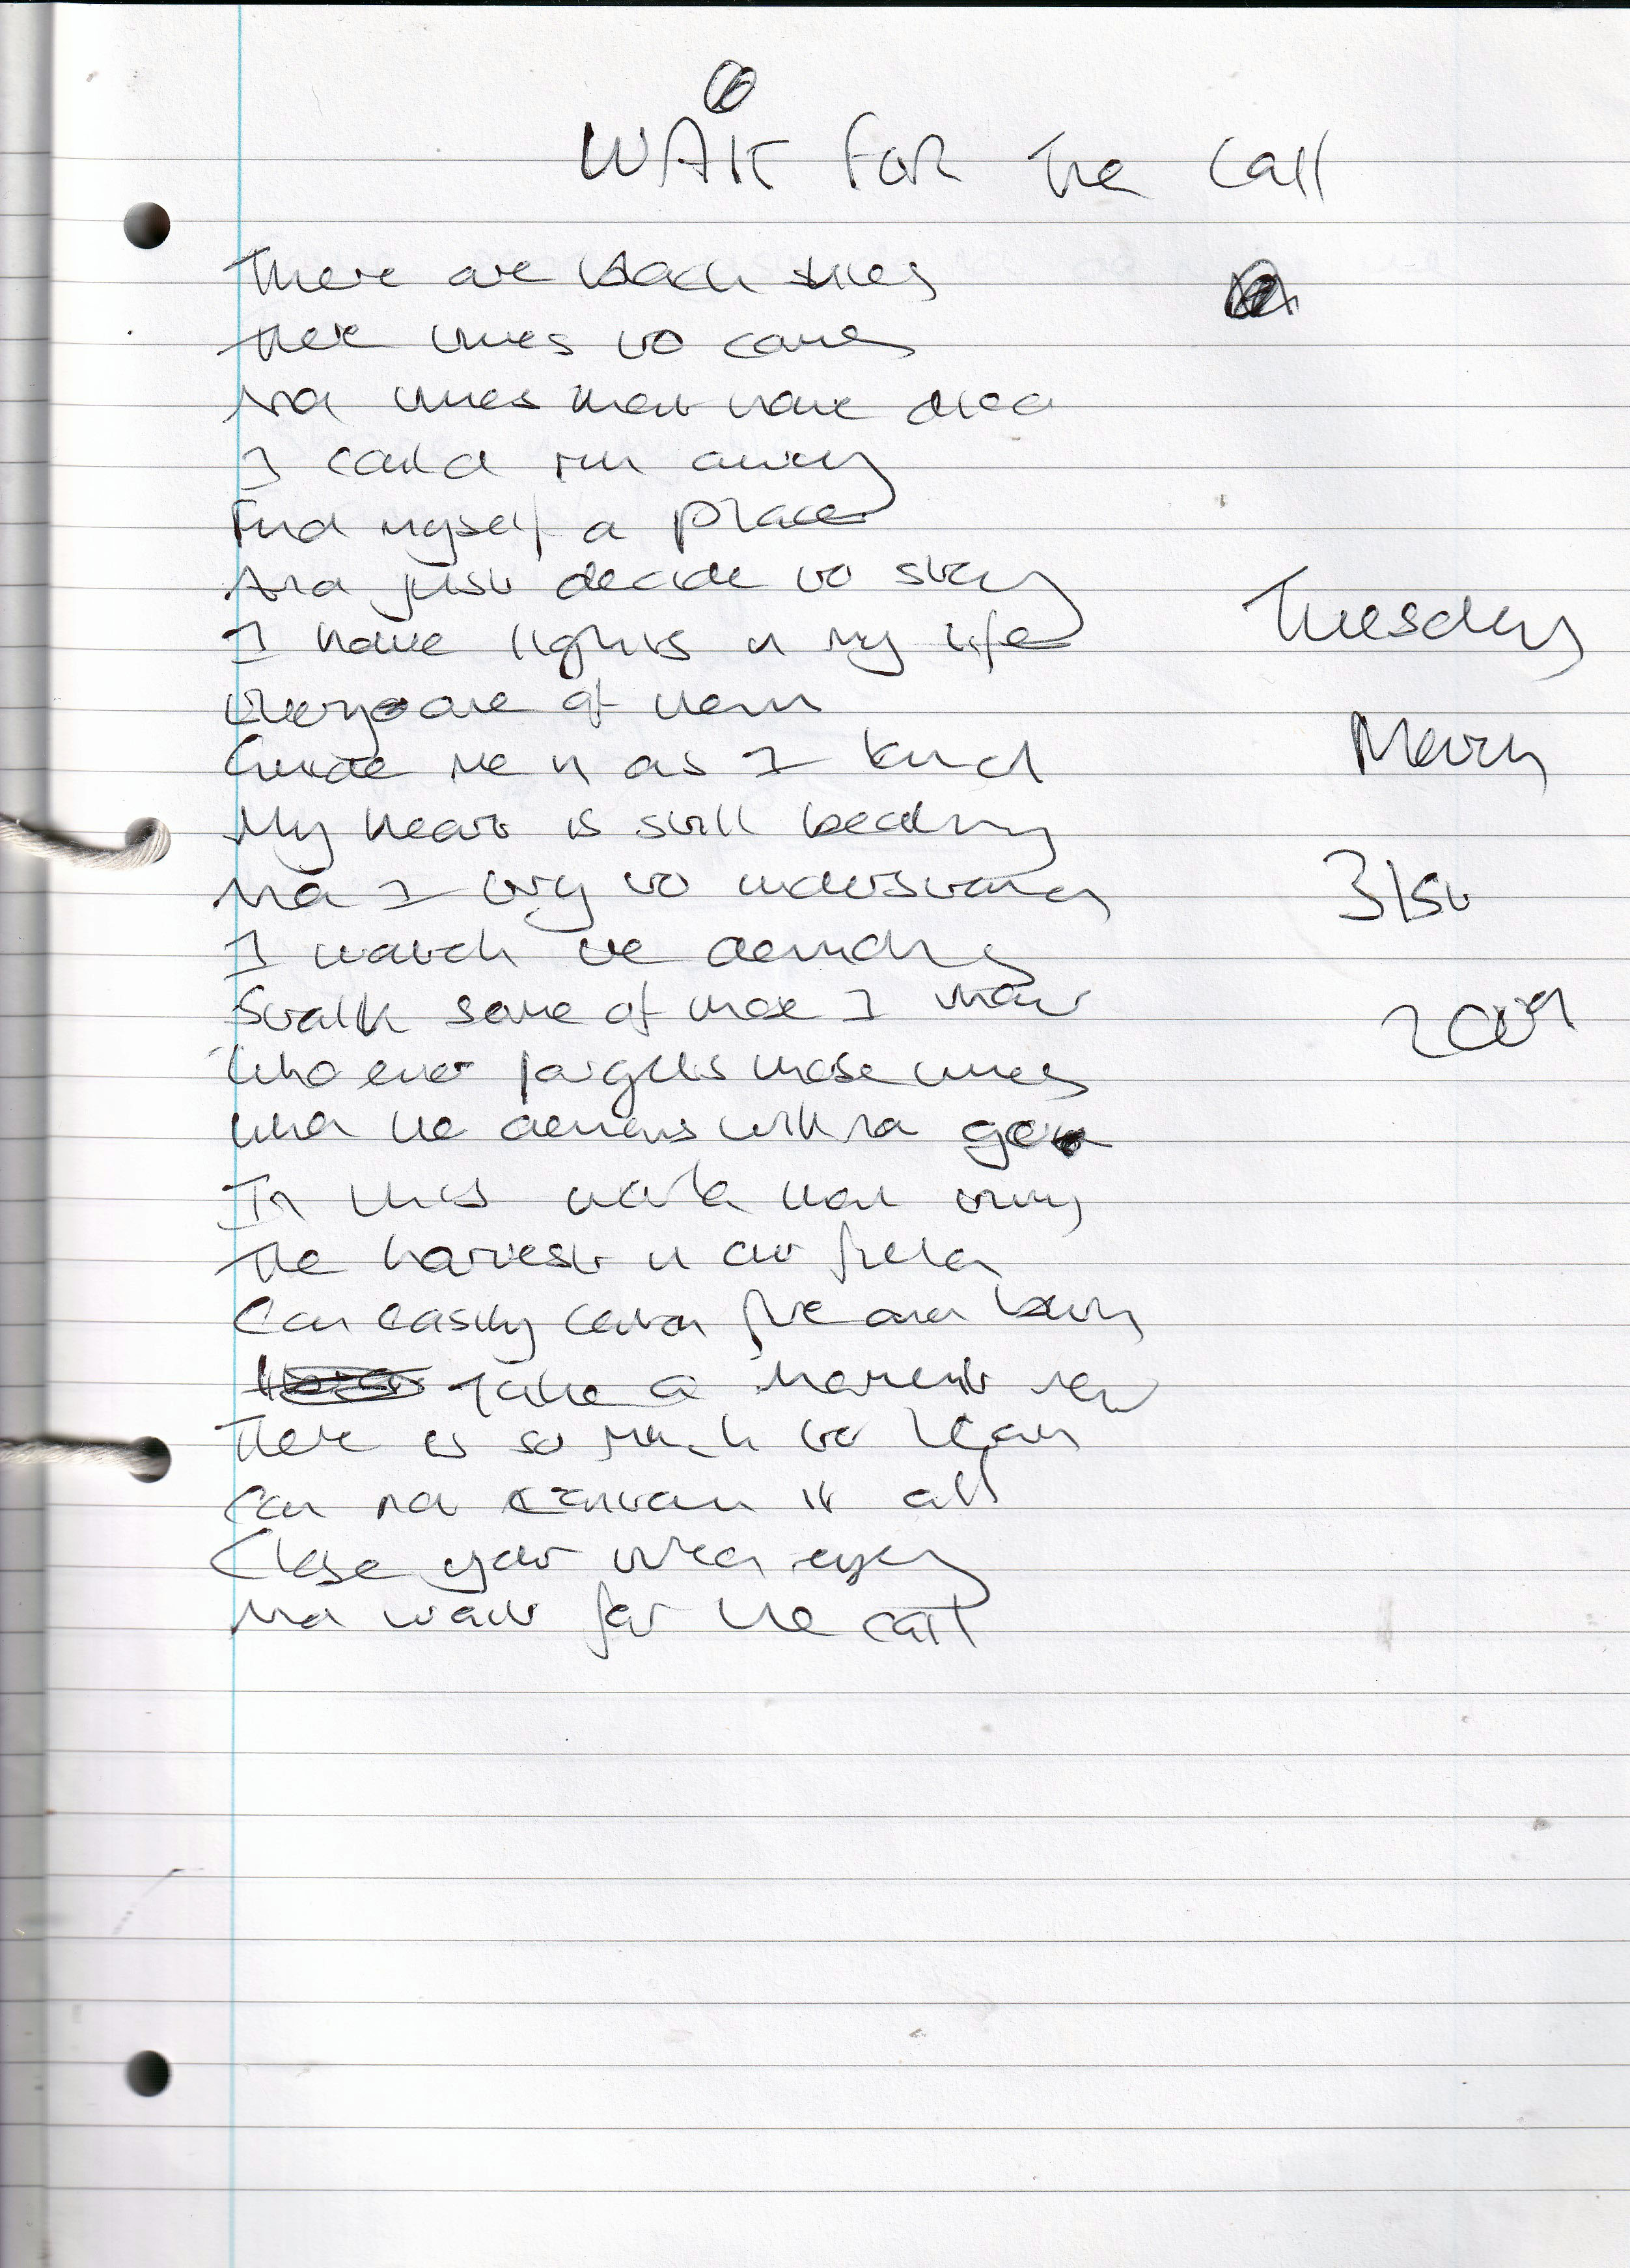 WAIT FOR The Call
There are black skies
There times to come
And times that have died
I could run away
Find myself a place
And just decide to stay
I have lights in my life
Everyone of them
Guide me in as I land
My heart is still beating
And I try to understand
I watch the demons
Stalk some of those I know
Who ever forgets those times
When the demons will not go
In this world that turns
The harvest in our fields
Can easily catch fire and burn
Take a moment now
There is so much to learn
Can not contain it all
Close your tired eyes
And wait for the call
Tuesday
March
31st
2009